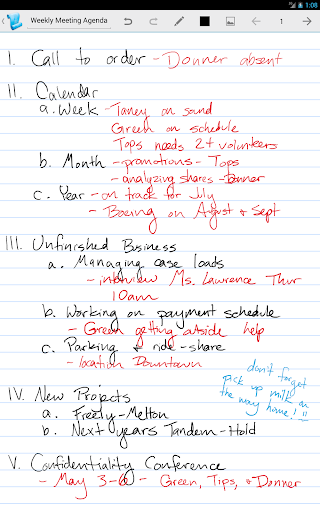 1:08
Weekly Meeting Agenda
1
I. Call to order - Donner absent
II. Calendar
a. Week - Taney on sound
Green on schedule
Tops needs 2+ volunteers
b. Month - promotions - Tops
- analyzing shares - Donner
c. Year - on track for July
- Boeing on August + Sept
III. Unfinished Business
a. Managing case loads
- interview Ms. Lawrence Thur
10am
b. Working on payment schedule
- Green getting outside help
c. Parking & ride-share
- location Downtown
don't forget
pick up milk on
the way home!!
IV. New Projects
a. Freety - Melton
b. Next years Tandem - Hold
V. Confidentiality Conference
- May 3-6 - Green, Tips, + Donner